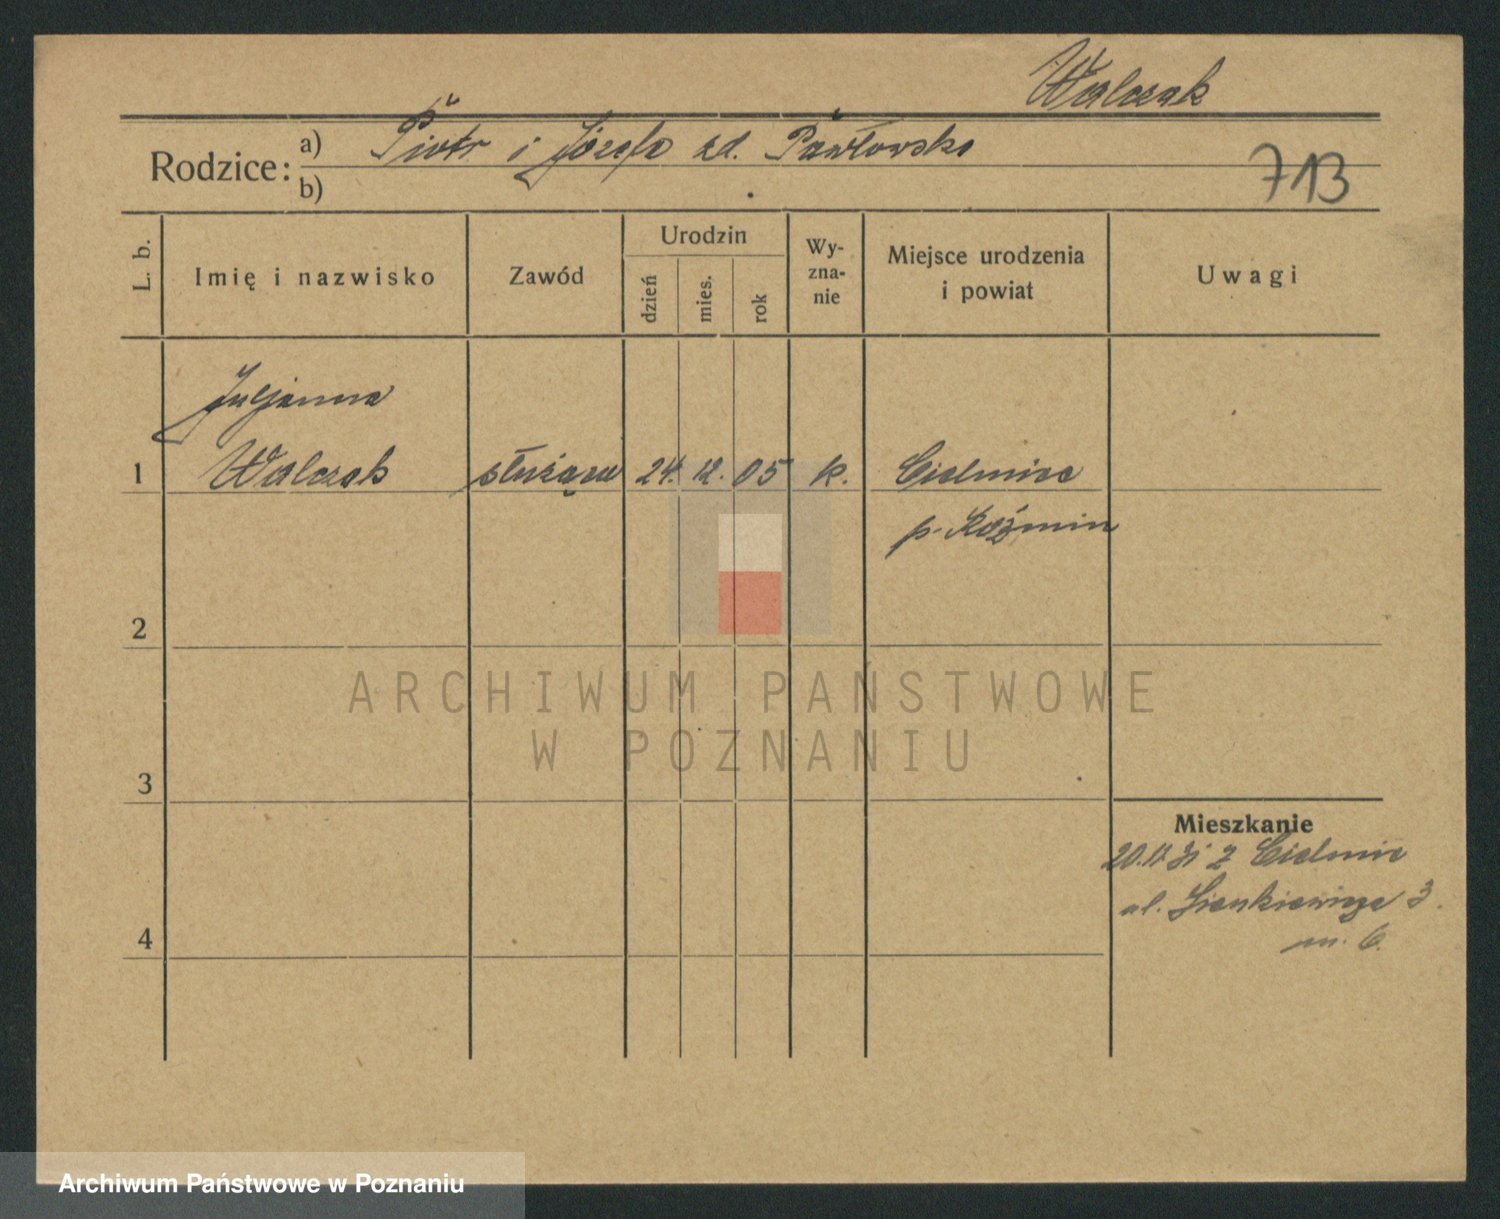 Walczak
Rodzice: a) Piotr i Józefa zd. Pawłowska
b)
713
L. b.
Imię i nazwisko
Zawód
Urodzin
dzień
mies.
rok
Wy-
zna-
nie
Miejsce urodzenia
i powiat
Uwagi
Juljanna
1 Walczak służąca 24. 12. 05 k. Cielmice
p. Koźmin
2
ARCHIWUM PAŃSTWOWE
W POZNANIU
3
Mieszkanie
20. 31 z Cielmic
ul. Sienkiewicza 3.
m. 6.
4
Archiwum Państwowe w Poznaniu